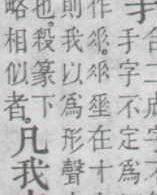 手
合二成字不爲
手字不定爲
作𠂹。𠂹𡍮在十
則我以爲形聲
也。殺篆下
略相似者。
凡我